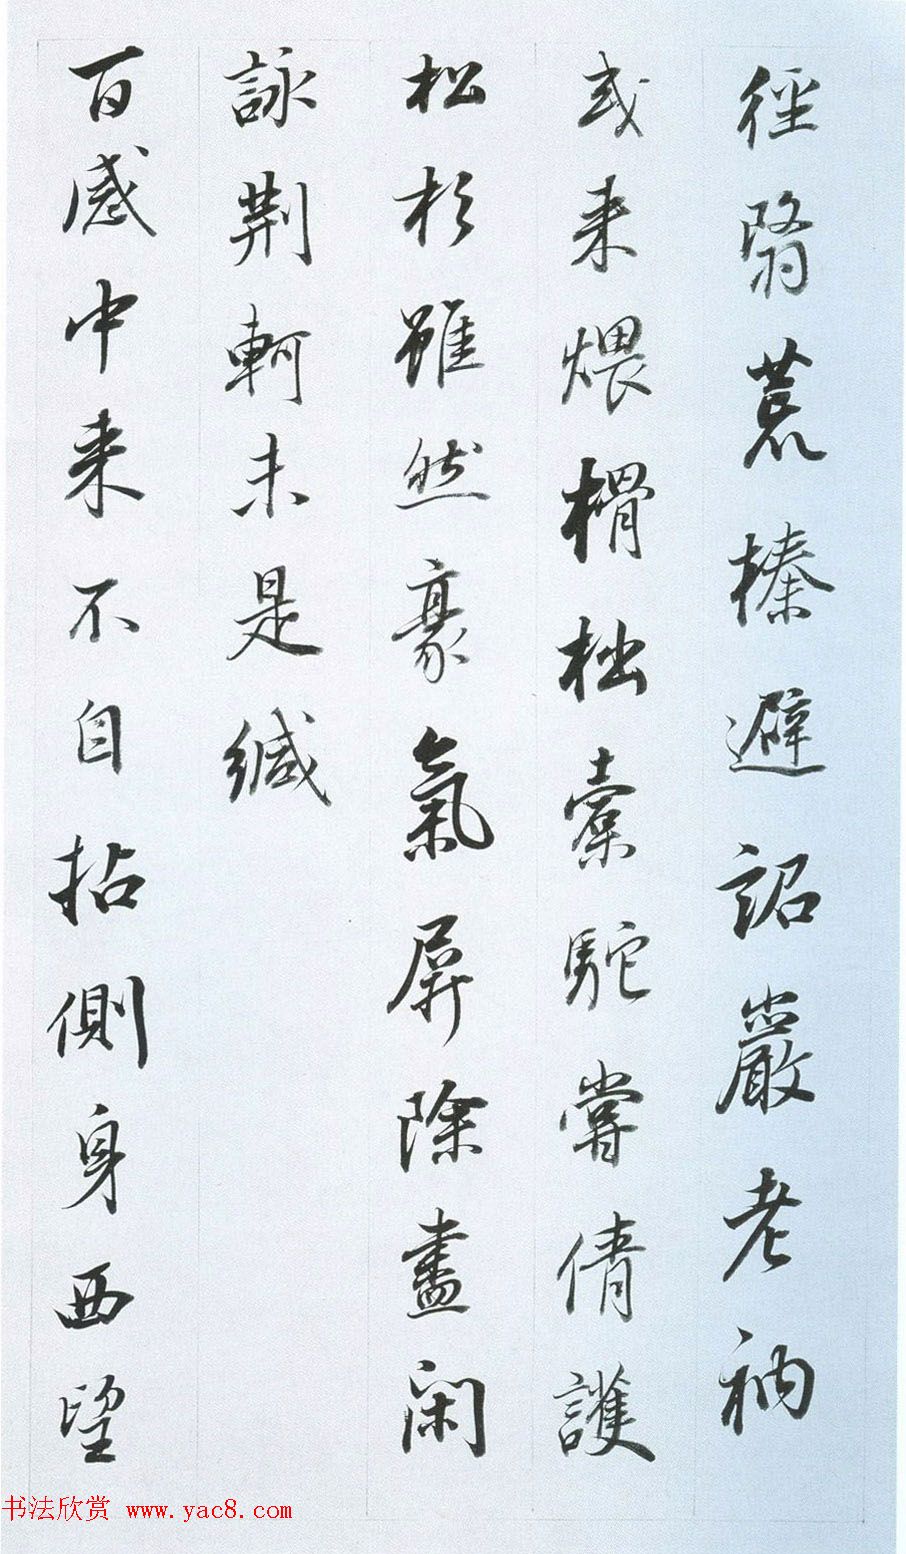 徑翳荒榛避詔嚴老衲
或来煨榾柮橐駝嘗倩護
松杉雖然豪氣屏除盡閑
詠荆軻未是緘
百感中来不自拈側身西望
书法欣赏 www.yac8.com